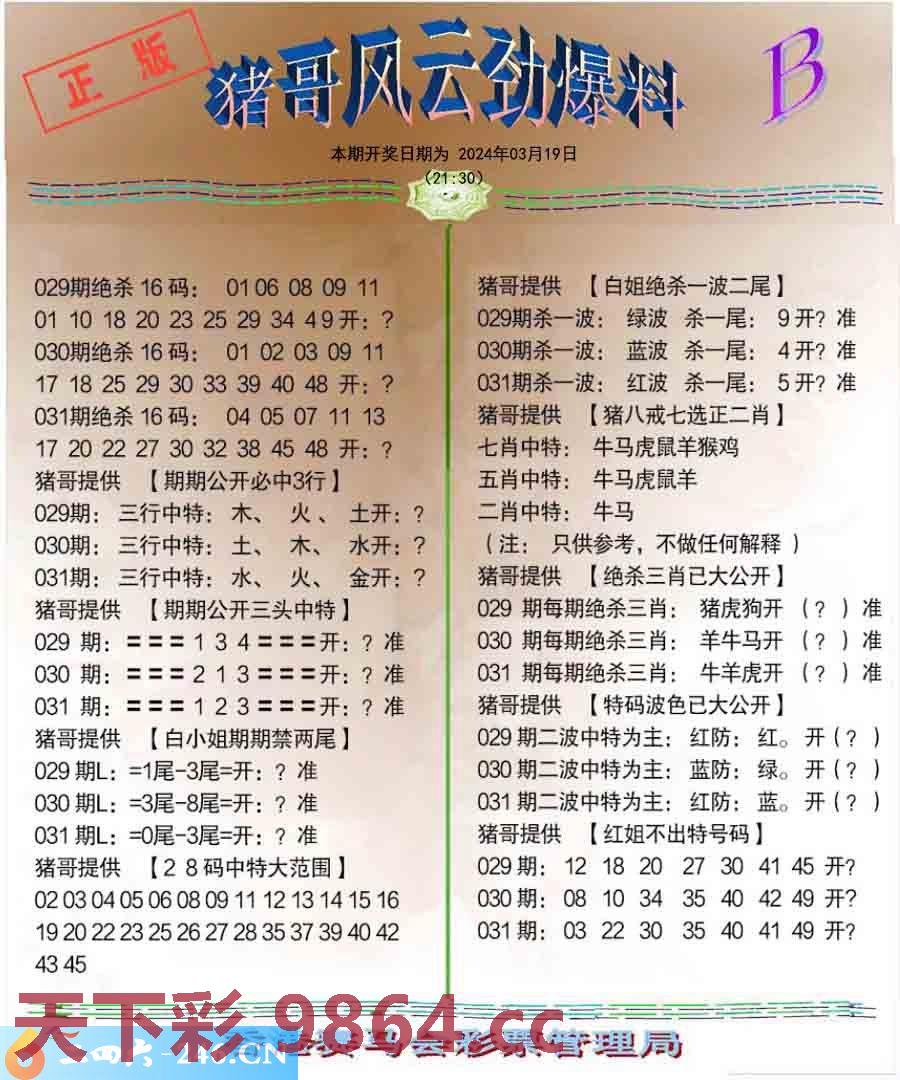 正版
猪哥风云劲爆料
B
本期开奖日期为 2024年03月19日
(21:30)
029期绝杀 16 码： 01 06 08 09 11
01 10 18 20 23 25 29 34 49 开：?
030期绝杀 16 码： 01 02 03 09 11
17 18 25 29 30 33 39 40 48 开：?
031期绝杀 16 码： 04 05 07 11 13
17 20 22 27 30 32 38 45 48 开：?
猪哥提供 【期期公开必中3行】
029期： 三行中特： 木、 火、 土开：?
030期： 三行中特： 土、 木、 水开：?
031期： 三行中特： 水、 火、 金开：?
猪哥提供 【期期公开三头中特】
029 期：＝＝＝1 3 4＝＝＝开：? 准
030 期：＝＝＝2 1 3＝＝＝开：? 准
031 期：＝＝＝1 2 3＝＝＝开：? 准
猪哥提供 【白小姐期期禁两尾】
029 期L：=1尾-3尾=开：? 准
030 期L：=3尾-8尾=开：? 准
031 期L：=0尾-3尾=开：? 准
猪哥提供 【28码中特大范围】
02 03 04 05 06 08 09 11 12 13 14 15 16
19 20 22 23 25 26 27 28 35 37 39 40 42
43 45
猪哥提供 【白姐绝杀一波二尾】
029期杀一波： 绿波 杀一尾： 9开? 准
030期杀一波： 蓝波 杀一尾： 4开? 准
031期杀一波： 红波 杀一尾： 5开? 准
猪哥提供 【猪八戒七选正二肖】
七肖中特： 牛马虎鼠羊猴鸡
五肖中特： 牛马虎鼠羊
二肖中特： 牛马
（注： 只供参考，不做任何解释 ）
猪哥提供 【绝杀三肖已大公开】
029 期每期绝杀三肖： 猪虎狗开 （? ）准
030 期每期绝杀三肖： 羊牛马开 （? ）准
031 期每期绝杀三肖： 牛羊虎开 （? ）准
猪哥提供 【特码波色已大公开】
029 期二波中特为主：红防：红。开（? ）
030 期二波中特为主：蓝防：绿。开（? ）
031 期二波中特为主：红防：蓝。开（? ）
猪哥提供 【红姐不出特号码】
029 期： 12 18 20 27 30 41 45 开?
030 期： 08 10 34 35 40 42 49 开?
031 期： 03 22 30 35 40 41 49 开?
天下彩.9864.cc
二四六-246.CN
赛马会彩票管理局